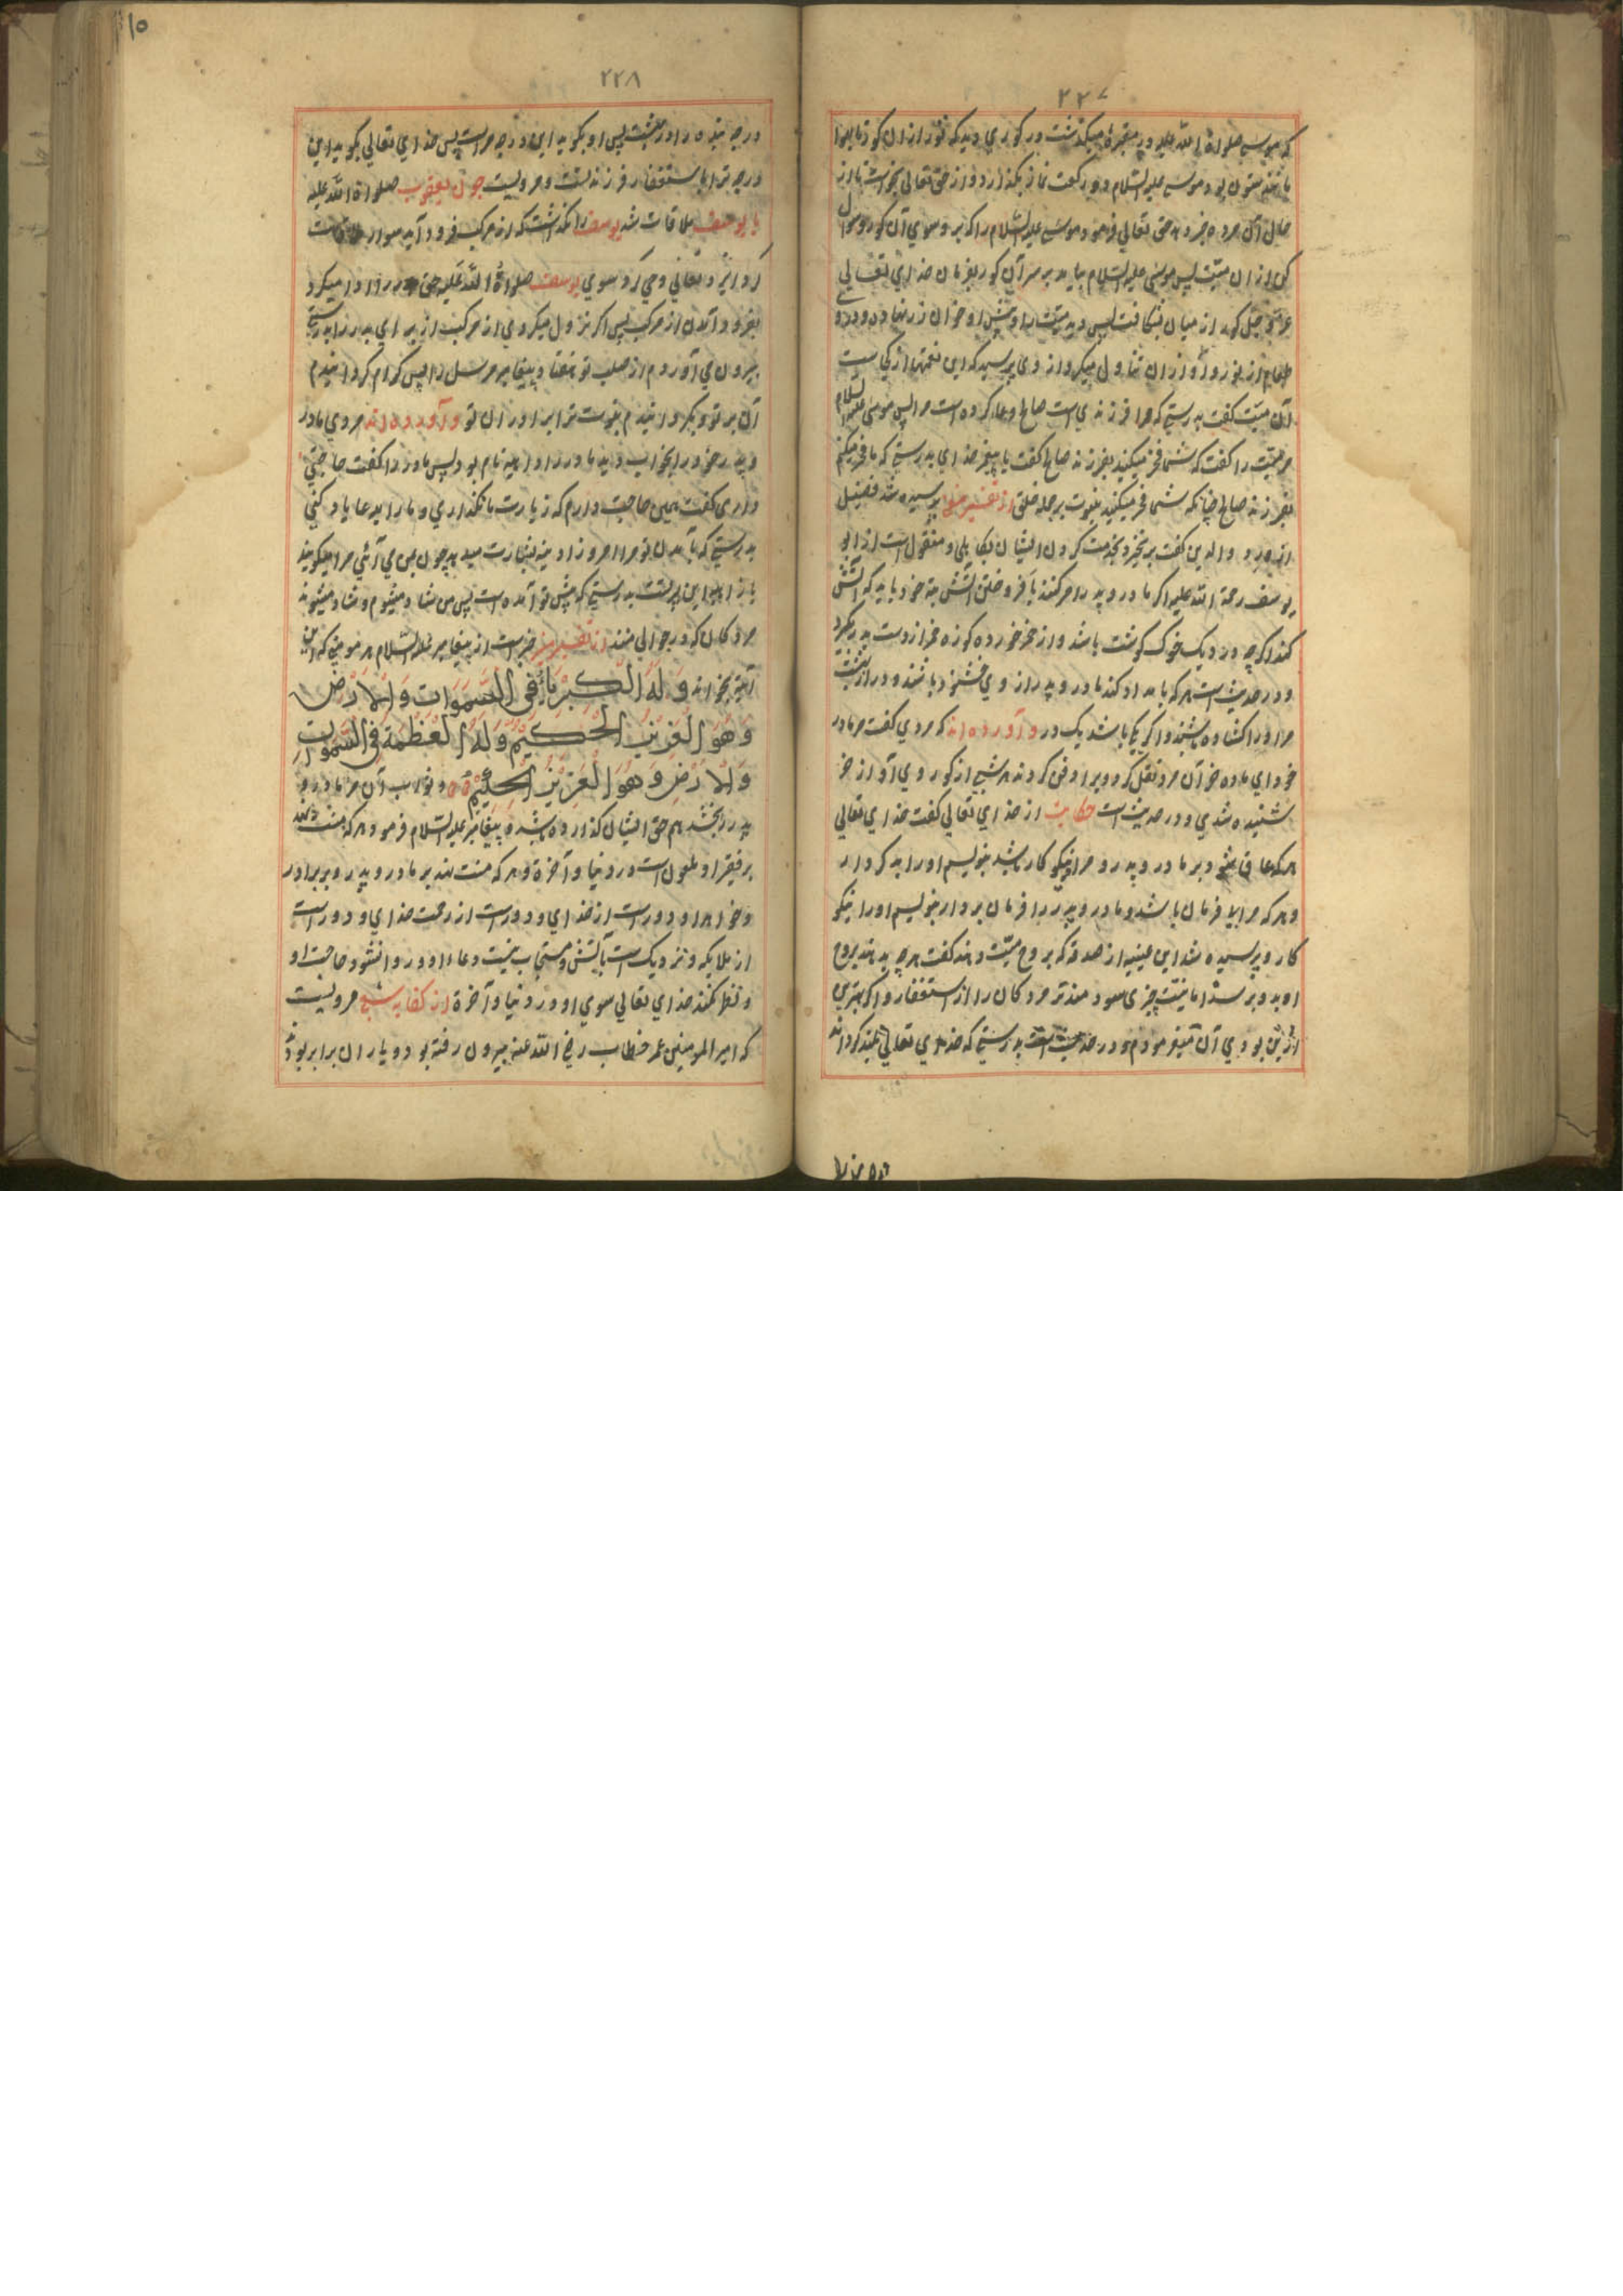 ۲۲۷
که موسی صلواة الله علیه در مقبرهٔ میکذشت در کوری دید که نور ازان کور تا بهوا
مانند ستون بود موسی علیه السلام دو رکعت نماز بکذارد و از حق تعالی بخواست تا از
حال آن مرده خبر دهد حق تعالی فرمود موسی علیه السلام را که برو سوی آن کور و سوال
کن ازان میّت پس موسی علیه السلام بیاید بر سر آن کور بفرمان خدای تعالی
عزّ و جل کور از میان بشکافت پس دید میّت را و پیش او خوان زرّ نهاده و درو
طعام از نور و او ازان تناول میکرد از وی پرسید که این نعمتها از کجاست
آن میّت کفت بدرستی که مرا فرزندی است صالح دعا کرده است مرا پس موسی علیه السلام
مر میّت را کفت که شما فخر میکنید بفرزند صالح کفت یا پیغمبر خدای بدرستی که ما فخر میکنیم
بفرزند صالح چنانکه شما فخر میکنید بنبوت بر جمله خلق از تفسیر پرسیده شد فضیل
از والدین کفت برنخیزد بخدمت کردن ایشان بکاهلی و منقول است از ابو
یوسف رحمة الله علیه اکر مادر و پدر امر کنند بافروختن آتش بتۀ خود باید که آتش
کند اکرچه در دیک خوک کوشت باشد و از خمر خورده کوزه خمر از دست پدر بکیرد
و در حدیث است هر که بامداد کند مادر و پدر از وی خشنود باشند دو در از بهشت
مر او را کشاده باشند و اکر یکی باشد یک در و آورده اند که مردی کفت مر مادر
خود ای ماده خر آن مرد نقل کرد ویرا دفن کردند هر شبی از کور وی آواز خر
شنیده شدی و در حدیث است حکایت از خدای تعالی کفت خدای تعالی
هر که عاق شود بر مادر و پدر و مرا نیکو کار باشد بنویسم او را بد کردار
و هر که مرا بی فرمان باشد و مادر و پدر را فرمان بردار بنویسم او را نیکو
کار و پرسیده شد ابن عیینه از صدقه که بروح میّت دهند کفت هرچه بدهند بروح
او بدو برسد اما نیست چیزی سودمندتر مردکان را از استغفار و اکر بهتری
ازین بودی آن میفرمودم و در حدیث است بدرستی که خدای تعالی بلند کرداند
۲۲۸
درجه بنده را در بهشت پس او بکوید این درجه مراست پس خدای تعالی بکوید این
درجه ترا باستغفار فرزند تست و مرویست چون یعقوب صلواة الله علیه
با یوسف ملاقات شد یوسف را نکذاشت که از مرکب فرود آید سوار ملاقات
کرد ایزد تعالی وحی کرد سوی یوسف صلواة الله علیه حق پدر را ادا میکرد
بفرود آمدن از مرکب پس اکر نزول میکردی از مرکب از برای پدر بدرستی
بیرون می آوردم از صلب تو هفتاد پیغامبر مرسل را پس کرام کردانیدم
آن بر تو و بکردانیدم نبوت ترا برادران تو و آورده اند مردی مادر
و پدر خود را بخواب دید مادر را او امینه نام بود پس مادر را کفت حاجتی
داری کفت همین حاجت دارم که زیارت ما نکذاری و ما را بدعا یاد کنی
بدرستی که بآمدن تو مرا امروز ادینه بشارت میدهد چون بمن می آئی مرا میکویند
یا راهبه این پسر تست بدرستی که پیش تو آمده است پس من شاد میشوم و شاد میشوند
مردکان که در حوالی منند از تفسیر خبر است از پیغامبر علیه السلام هر مومنی که این
آیت بخواند وَلَهُ الْكِبْرِيَاءُ فِي السَّمَوَاتِ وَالْاَرْضِ
وَهُوَ الْعَزِيزُ الْحَكِيمُ وَلَهُ الْعَظَمَةُ فِي السَّمَوَاتِ
وَالْاَرْضِ وَهُوَ الْعَزِيزُ الْحَكِيمُ و ثواب آن مر مادر و
پدر را بخشد هم حق ایشان کذارده باشد و پیغامبر علیه السلام فرمود هر که منت نهد
بر فقیر او ملعون است در دنیا و آخرة و هر که منت نهد بر مادر و پدر و بر برادر
و خواهر او دور است از خدای و دور است از رحمت خدای و دور است
از ملایکه و نزدیک است بآتش و مستجاب نیست دعاء او و روا نشود حاجت او
و نظر نکند خدای تعالی سوی او در دنیا و آخرة از کفایه شعبی مرویست
که امیر المومنین عمر خطاب رضی الله عنه بیرون رفته بود و یاران برابر بودند